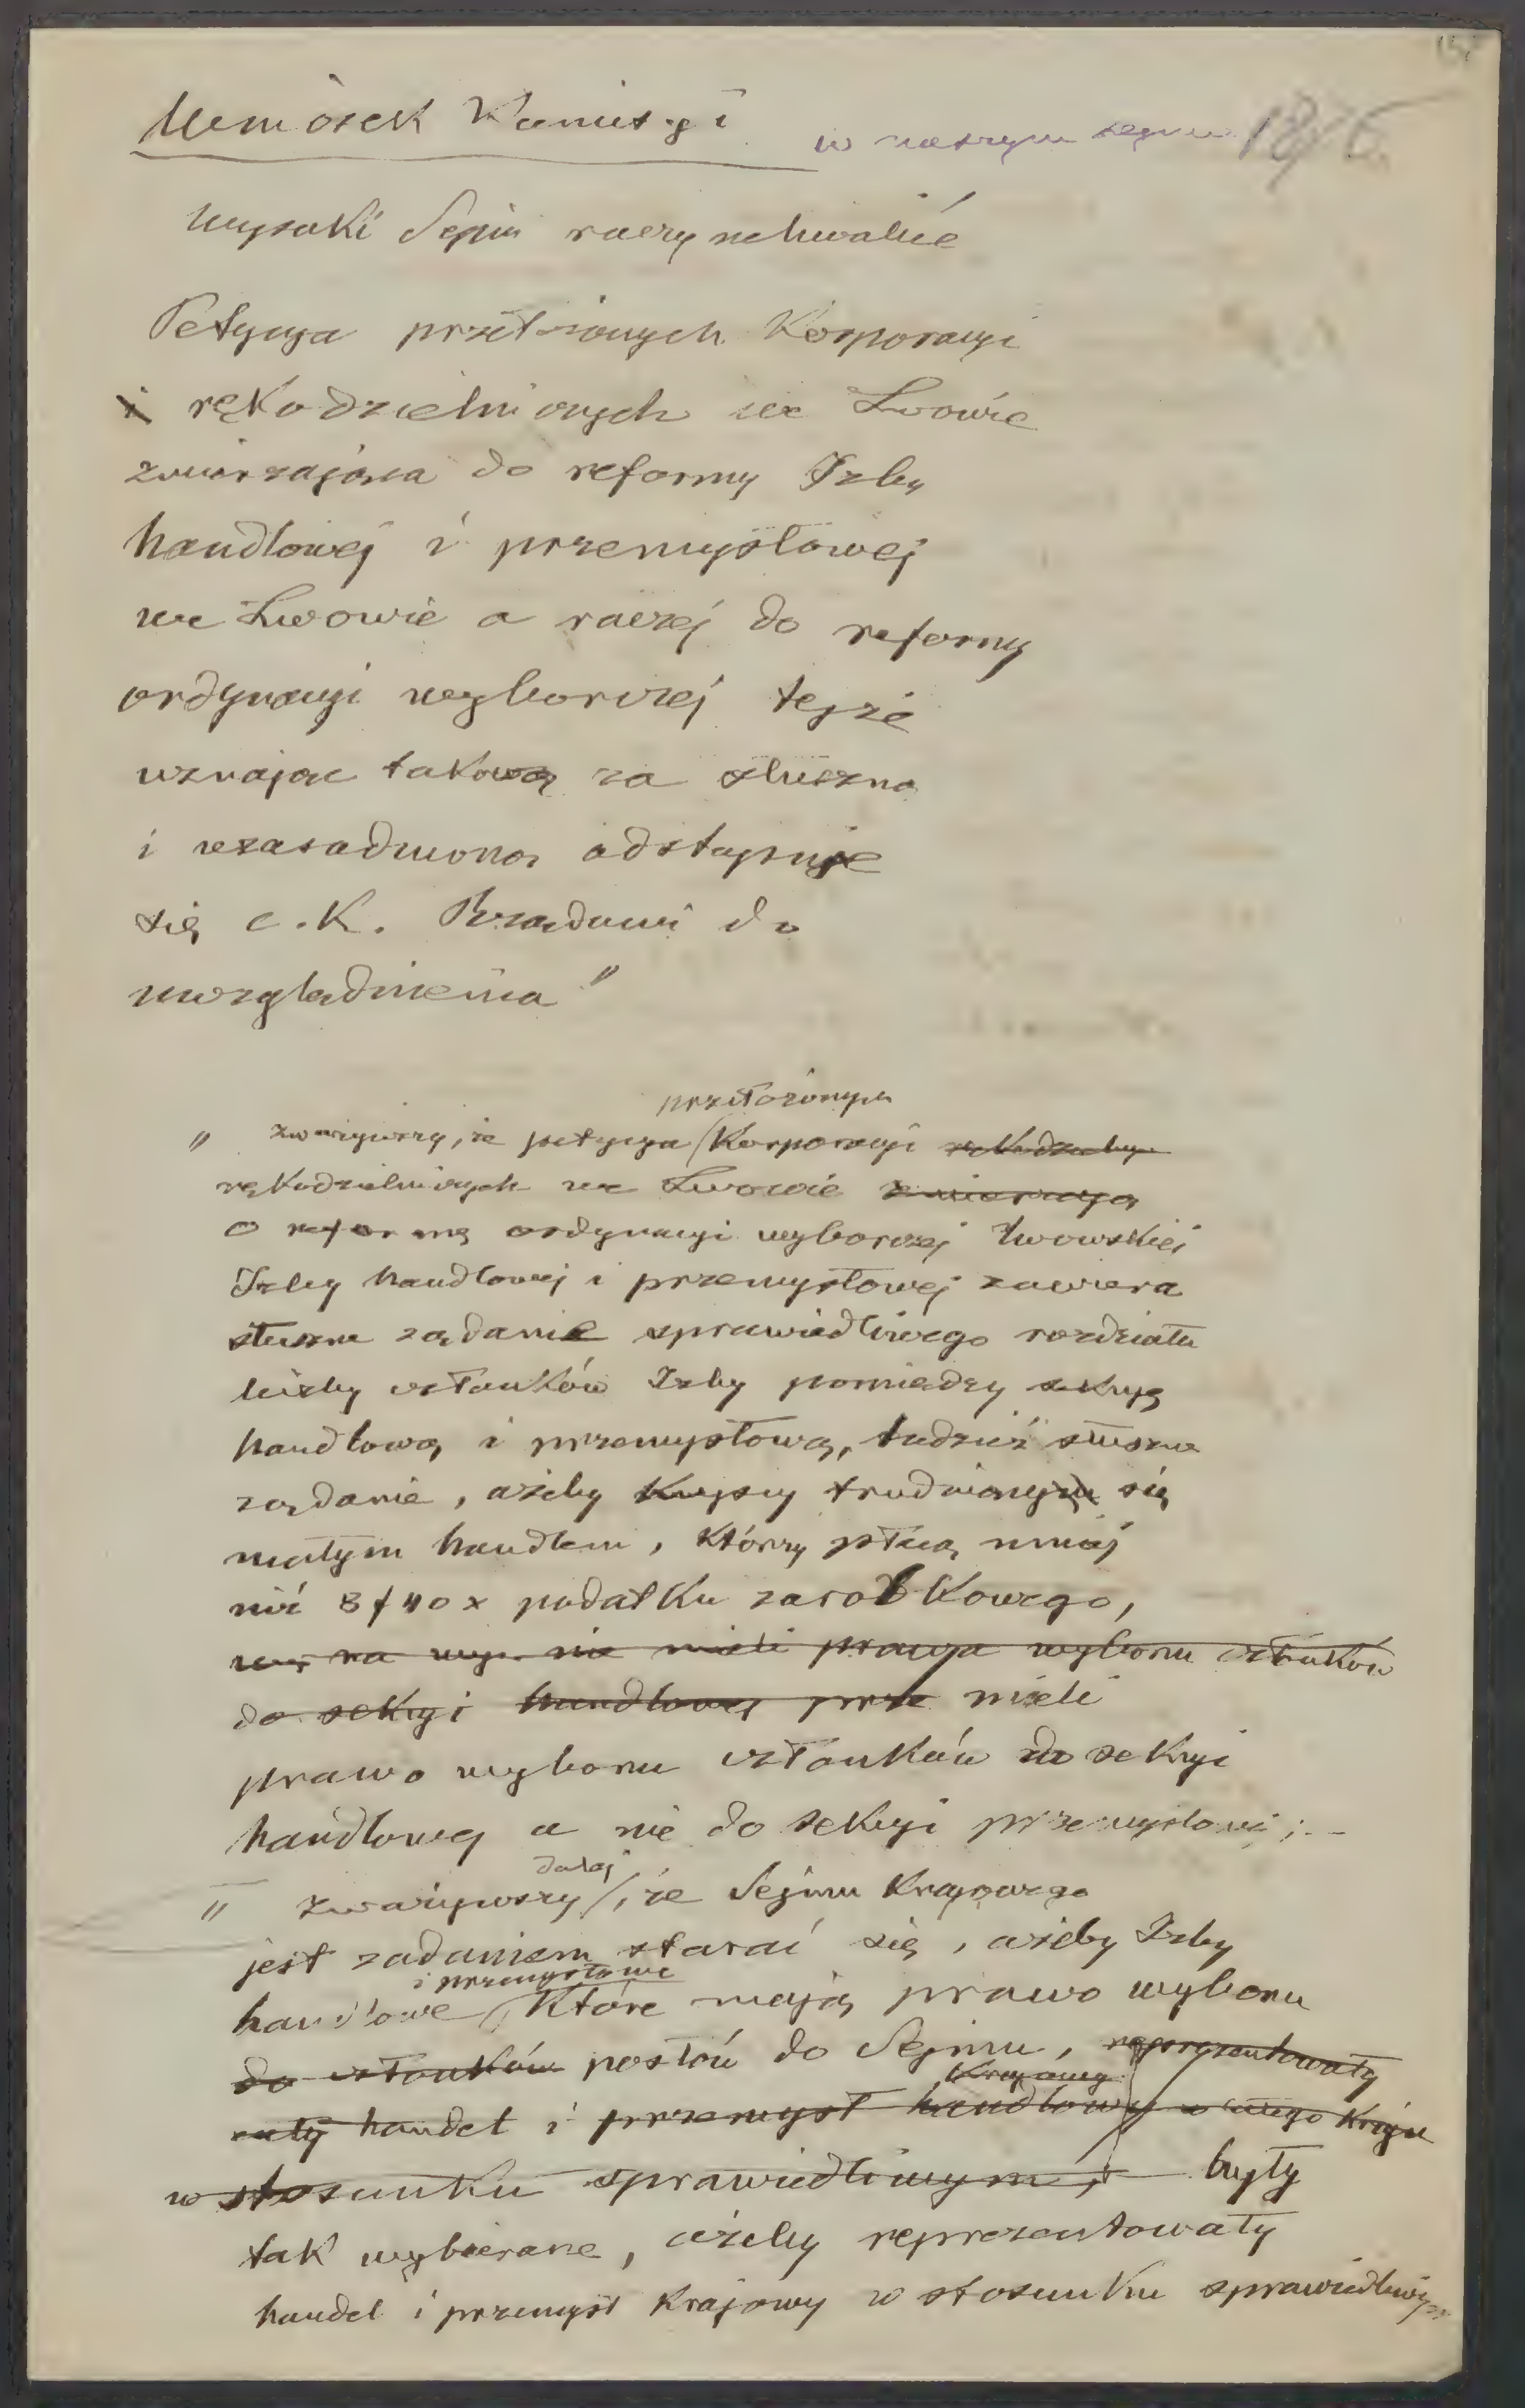 Wniosek Komisyi
w naszym sejmie 1876
Wysoki Sejm raczy uchwalić
Petycya przełożonych Korporacyi
i rękodzielniczych we Lwowie
zmierzająca do reformy Izby
handlowej i przemysłowej
we Lwowie a raczej do reformy
ordynacyi wyborczej tejże
uznając takową za słuszną
i uzasadnioną odstępuje
się c. K. Rządowi do
uwzględnienia"
przełożonych
" zważywszy, że petycya Korporacyi
rękodzielniczych we Lwowie zmierzająca
o reformę ordynacyi wyborczej lwowskiej
Izby handlowej i przemysłowej zawiera
słuszne żądanie sprawiedliwego rozdziału
liczby członków Izby pomiędzy sekcyę
handlową i przemysłową, tudzież słuszne
żądanie, ażeby Kupcy trudniący się
małym handlem, którzy płacą mniej
niż 8 f 40 x podatku zarobkowego,
na wyb. nie mieli prawa wyboru członków
do sekcyi handlowej prze mieli
prawo wyboru członków do sekcyi
handlowej a nie do sekcyi przemysłowej; --
dalej
" zważywszy, że Sejmu Krajowego
jest zadaniem starać się, ażeby Izby
i przemysłowe
handlowe, Które mają prawo wyboru
do członków posłów do Sejmu, reprezentowały
Krajowy
cały handel i przemysł handlowy w całego Kraju
w stosunku sprawiedliwym; były
tak wybierane, ażeby reprezentowały
handel i przemysł Krajowy w stosunku sprawiedliwym